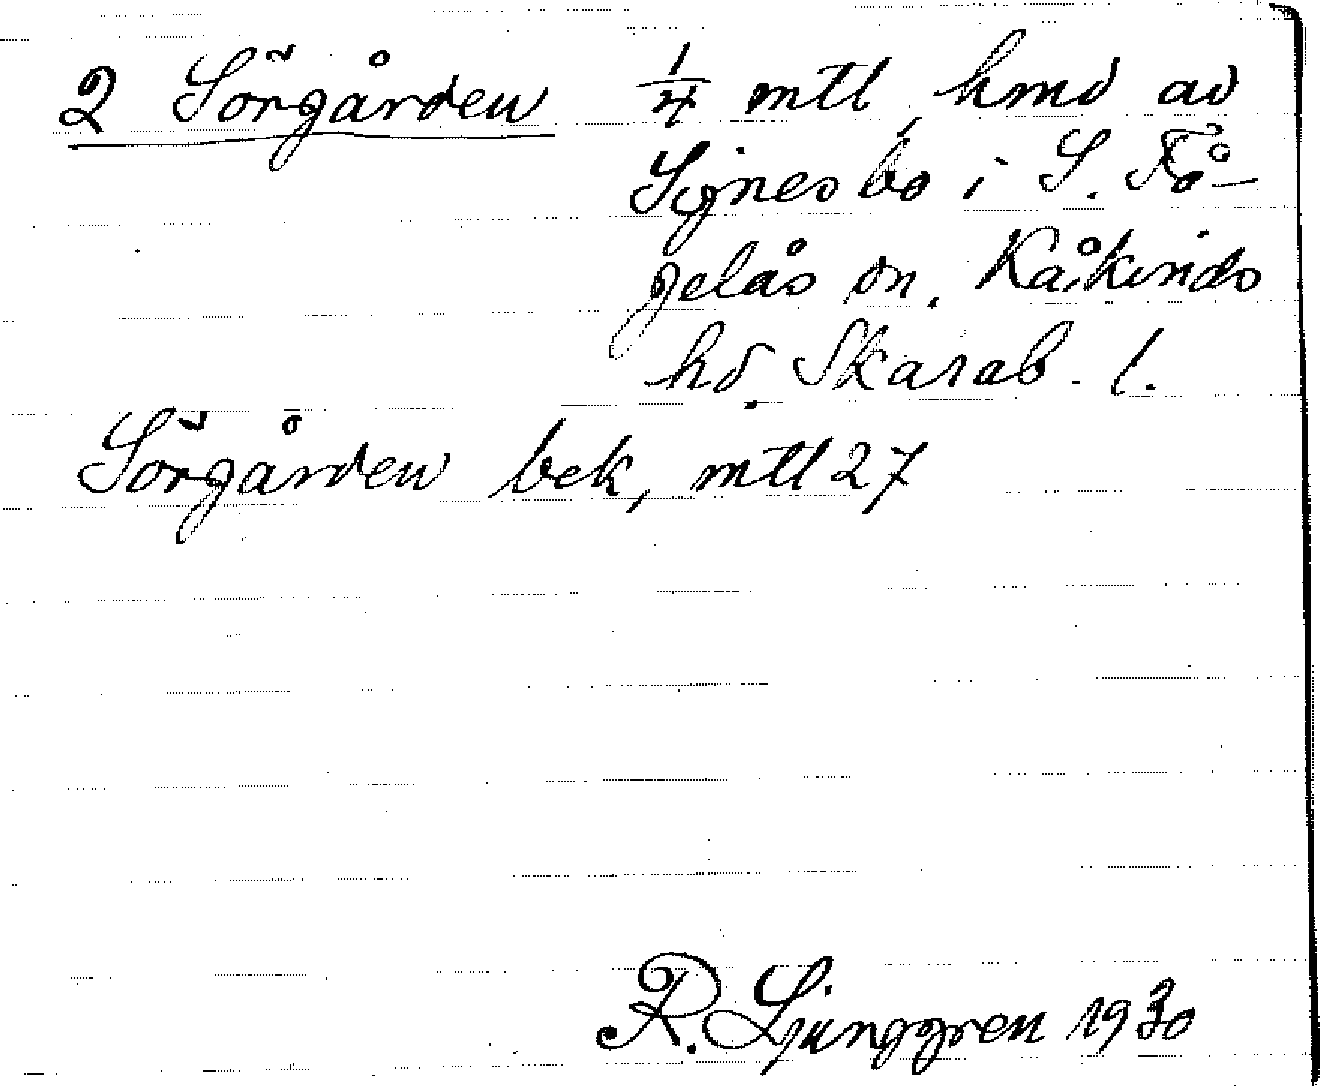 2 Sörgården 1/4 mtl, hmd av
Signesbo i S. Få-
gelås sn. Kåkinds
hd. Skarab. l.
Sörgården bek, mtl 27
R. Ljunggren 1930